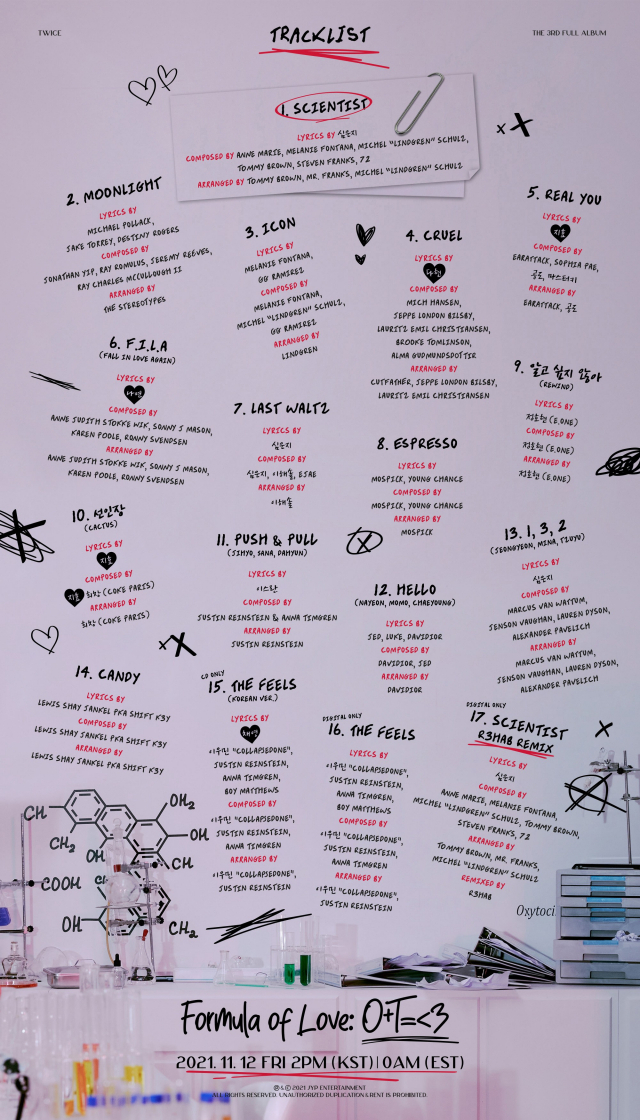 TWICE
THE 3RD FULL ALBUM
TRACKLIST
1. SCIENTIST
LYRICS BY 심은지
COMPOSED BY ANNE MARIE, MELANIE FONTANA, MICHEL "LINDGREN" SCHULZ,
TOMMY BROWN, STEVEN FRANKS, 72
ARRANGED BY TOMMY BROWN, MR. FRANKS, MICHEL "LINDGREN" SCHULZ
2. MOONLIGHT
LYRICS BY
MICHAEL POLLACK,
JAKE TORREY, DESTINY ROGERS
COMPOSED BY
JONATHAN YIP, RAY ROMULUS, JEREMY REEVES,
RAY CHARLES MCCULLOUGH II
ARRANGED BY
THE STEREOTYPES
3. ICON
LYRICS BY
MELANIE FONTANA,
GG RAMIREZ
COMPOSED BY
MELANIE FONTANA,
MICHEL "LINDGREN" SCHULZ,
GG RAMIREZ
ARRANGED BY
LINDGREN
4. CRUEL
LYRICS BY
다현
COMPOSED BY
MICH HANSEN,
JEPPE LONDON BILSBY,
LAURITZ EMIL CHRISTIANSEN,
BROOKE TOMLINSON,
ALMA GUDMUNDSDOTTIR
ARRANGED BY
CUTFATHER, JEPPE LONDON BILSBY,
LAURITZ EMIL CHRISTIANSEN
5. REAL YOU
LYRICS BY
지효
COMPOSED BY
EARATTACK, SOPHIA PAE,
공도, 따스터키
ARRANGED BY
EARATTACK, 공도
6. F.I.L.A
(FALL IN LOVE AGAIN)
LYRICS BY
나연
COMPOSED BY
ANNE JUDITH STOKKE WIK, SONNY J MASON,
KAREN POOLE, RONNY SVENDSEN
ARRANGED BY
ANNE JUDITH STOKKE WIK, SONNY J MASON,
KAREN POOLE, RONNY SVENDSEN
7. LAST WALTZ
LYRICS BY
심은지
COMPOSED BY
심은지, 이해솔, EJAE
ARRANGED BY
이해솔
8. ESPRESSO
LYRICS BY
MOSPICK, YOUNG CHANCE
COMPOSED BY
MOSPICK, YOUNG CHANCE
ARRANGED BY
MOSPICK
9. 알고 싶지 않아
(REWIND)
LYRICS BY
정호현 (E.ONE)
COMPOSED BY
정호현 (E.ONE)
ARRANGED BY
정호현 (E.ONE)
10. 선인장
(CACTUS)
LYRICS BY
지효
COMPOSED BY
지효 희락 (COKE PARIS)
ARRANGED BY
희락 (COKE PARIS)
11. PUSH & PULL
(JIHYO, SANA, DAHYUN)
LYRICS BY
이스란
COMPOSED BY
JUSTIN REINSTEIN & ANNA TIMGREN
ARRANGED BY
JUSTIN REINSTEIN
12. HELLO
(NAYEON, MOMO, CHAEYOUNG)
LYRICS BY
JED, LUKE, DAVIDIOR
COMPOSED BY
DAVIDIOR, JED
ARRANGED BY
DAVIDIOR
13. 1, 3, 2
(JEONGYEON, MINA, TZUYU)
LYRICS BY
심은지
COMPOSED BY
MARCUS VAN WATTUM,
JENSON VAUGHAN, LAUREN DYSON,
ALEXANDER PAVELICH
ARRANGED BY
MARCUS VAN WATTUM,
JENSON VAUGHAN, LAUREN DYSON,
ALEXANDER PAVELICH
14. CANDY
LYRICS BY
LEWIS SHAY JANKEL PKA SHIFT K3Y
COMPOSED BY
LEWIS SHAY JANKEL PKA SHIFT K3Y
ARRANGED BY
LEWIS SHAY JANKEL PKA SHIFT K3Y
CD ONLY
15. THE FEELS
(KOREAN VER.)
LYRICS BY
채영
이우민 "COLLAPSEDONE",
JUSTIN REINSTEIN,
ANNA TIMGREN,
BOY MATTHEWS
COMPOSED BY
이우민 "COLLAPSEDONE",
JUSTIN REINSTEIN,
ANNA TIMGREN
ARRANGED BY
이우민 "COLLAPSEDONE",
JUSTIN REINSTEIN
DIGITAL ONLY
16. THE FEELS
LYRICS BY
이우민 "COLLAPSEDONE",
JUSTIN REINSTEIN,
ANNA TIMGREN,
BOY MATTHEWS
COMPOSED BY
이우민 "COLLAPSEDONE",
JUSTIN REINSTEIN,
ANNA TIMGREN
ARRANGED BY
이우민 "COLLAPSEDONE",
JUSTIN REINSTEIN
DIGITAL ONLY
17. SCIENTIST
R3HAB REMIX
LYRICS BY
심은지
COMPOSED BY
ANNE MARIE, MELANIE FONTANA,
MICHEL "LINDGREN" SCHULZ, TOMMY BROWN,
STEVEN FRANKS, 72
ARRANGED BY
TOMMY BROWN, MR. FRANKS,
MICHEL "LINDGREN" SCHULZ
REMIXED BY
R3HAB
CH
OH2
CH2
OH
OH
CH
COOH
OH
CH2
Oxytoci
Formula of Love: O+T=<3
2021. 11. 12 FRI 2PM (KST) | 0AM (EST)
Ⓟ & © 2021 JYP ENTERTAINMENT.
ALL RIGHTS RESERVED. UNAUTHORIZED DUPLICATION & RENT IS PROHIBITED.